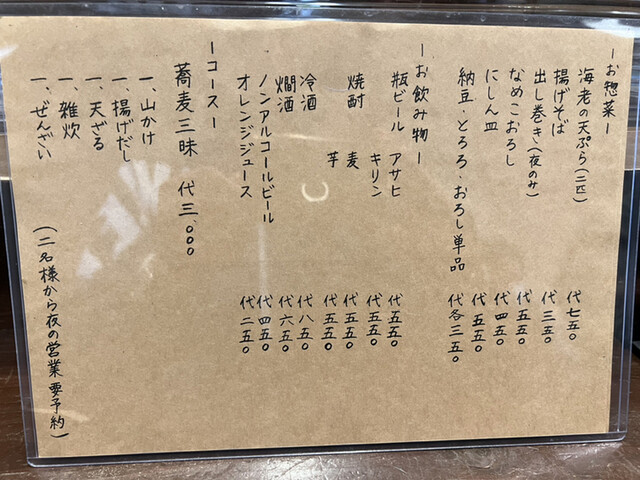 ーお惣菜ー
海老の天ぷら(二匹) 代七五〇
揚げそば 代三五〇
出し巻き(夜のみ) 代五五〇
なめこおろし 代四五〇
にしん皿 代五五〇
納豆・とろろ・おろし単品 代各三五〇
ーお飲み物ー
瓶ビール アサヒ 代五五〇
キリン 代五五〇
焼酎 麦 代五五〇
芋 代五五〇
冷酒 代八五〇
燗酒 代六五〇
ノンアルコールビール 代四五〇
オレンジジュース 代二五〇
ーコースー
蕎麦三昧 代三、〇〇〇
一、山かけ
一、揚げだし
一、天ざる
一、雑炊
一、ぜんざい
(二名様から夜の営業要予約)